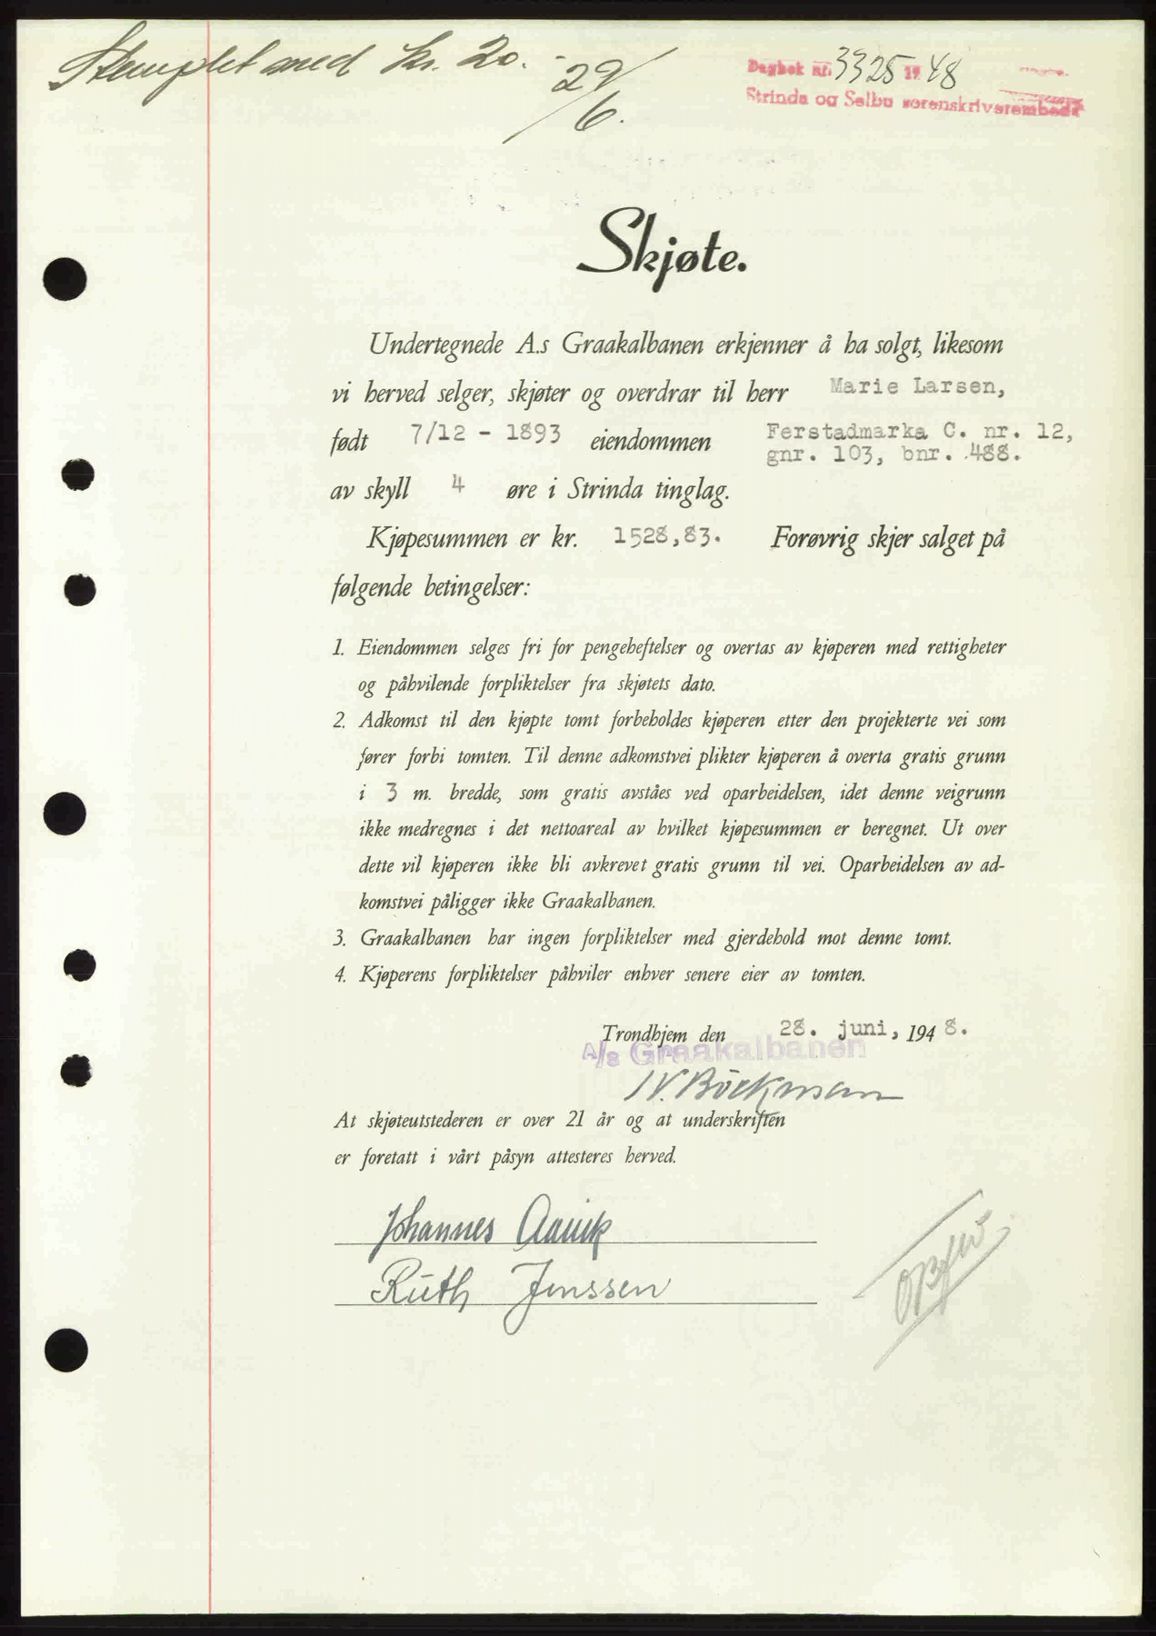 Stemplet med kr. 20.-
29/6.
Dagbok nr. 3325 1948
Strinda og Selbu sorenskriverembede
Skjøte.
Undertegnede A.s Graakalbanen erkjenner å ha solgt, likesom
vi herved selger, skjøter og overdrar til herr Marie Larsen,
født 7/12 - 1893 eiendommen Ferstadmarka C. nr. 12,
gnr. 103, bnr. 488.
av skyll 4 øre i Strinda tinglag.
Kjøpesummen er kr. 1528,83. Forøvrig skjer salget på
følgende betingelser:
1. Eiendommen selges fri for pengeheftelser og overtas av kjøperen med rettigheter
og påhvilende forpliktelser fra skjøtets dato.
2. Adkomst til den kjøpte tomt forbeholdes kjøperen etter den projekterte vei som
fører forbi tomten. Til denne adkomstvei plikter kjøperen å overta gratis grunn
i 3 m. bredde, som gratis avståes ved oparbeidelsen, idet denne veigrunn
ikke medregnes i det nettoareal av hvilket kjøpesummen er beregnet. Ut over
dette vil kjøperen ikke bli avkrevet gratis grunn til vei. Oparbeidelsen av ad-
komstvei påligger ikke Graakalbanen.
3. Graakalbanen har ingen forpliktelser med gjerdehold mot denne tomt.
4. Kjøperens forpliktelser påhviler enhver senere eier av tomten.
Trondhjem den 28. juni, 1948.
A/s Graakalbanen
N. Böckman
At skjøteutstederen er over 21 år og at underskriften
er foretatt i vårt påsyn attesteres herved.
Johannes
Ruth Jenssen